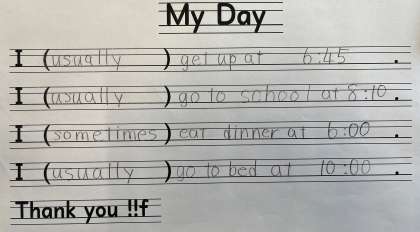 My Day
I (usually ) get up at 6:45 .
I (usually ) go to school at 8:10 .
I (sometimes) eat dinner at 6:00 .
I (usually ) go to bed at 10:00 .
Thank you !!f